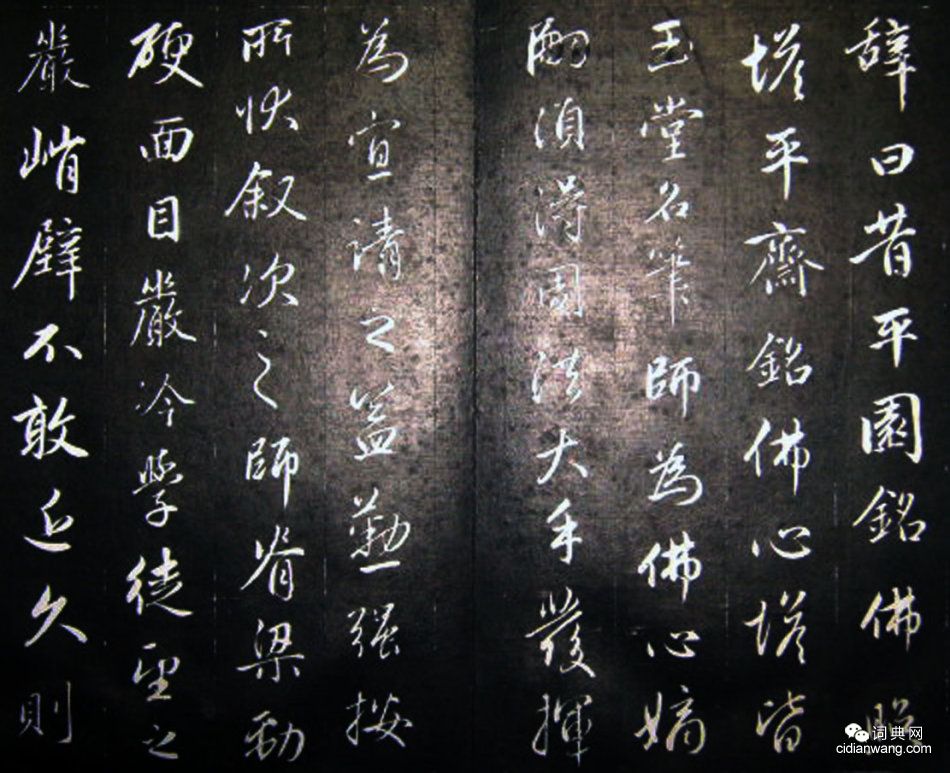 辭曰昔平園銘佛照
塔平齋銘佛心塔皆
玉堂名筆師為佛心嫡
嗣須得國法大手發揮
為宜請之益勤強按
所狀叙次之師脊梁勁
硬面目嚴冷學徒望之
嚴峭壁不敢近久則
词典网
cidianwang.com